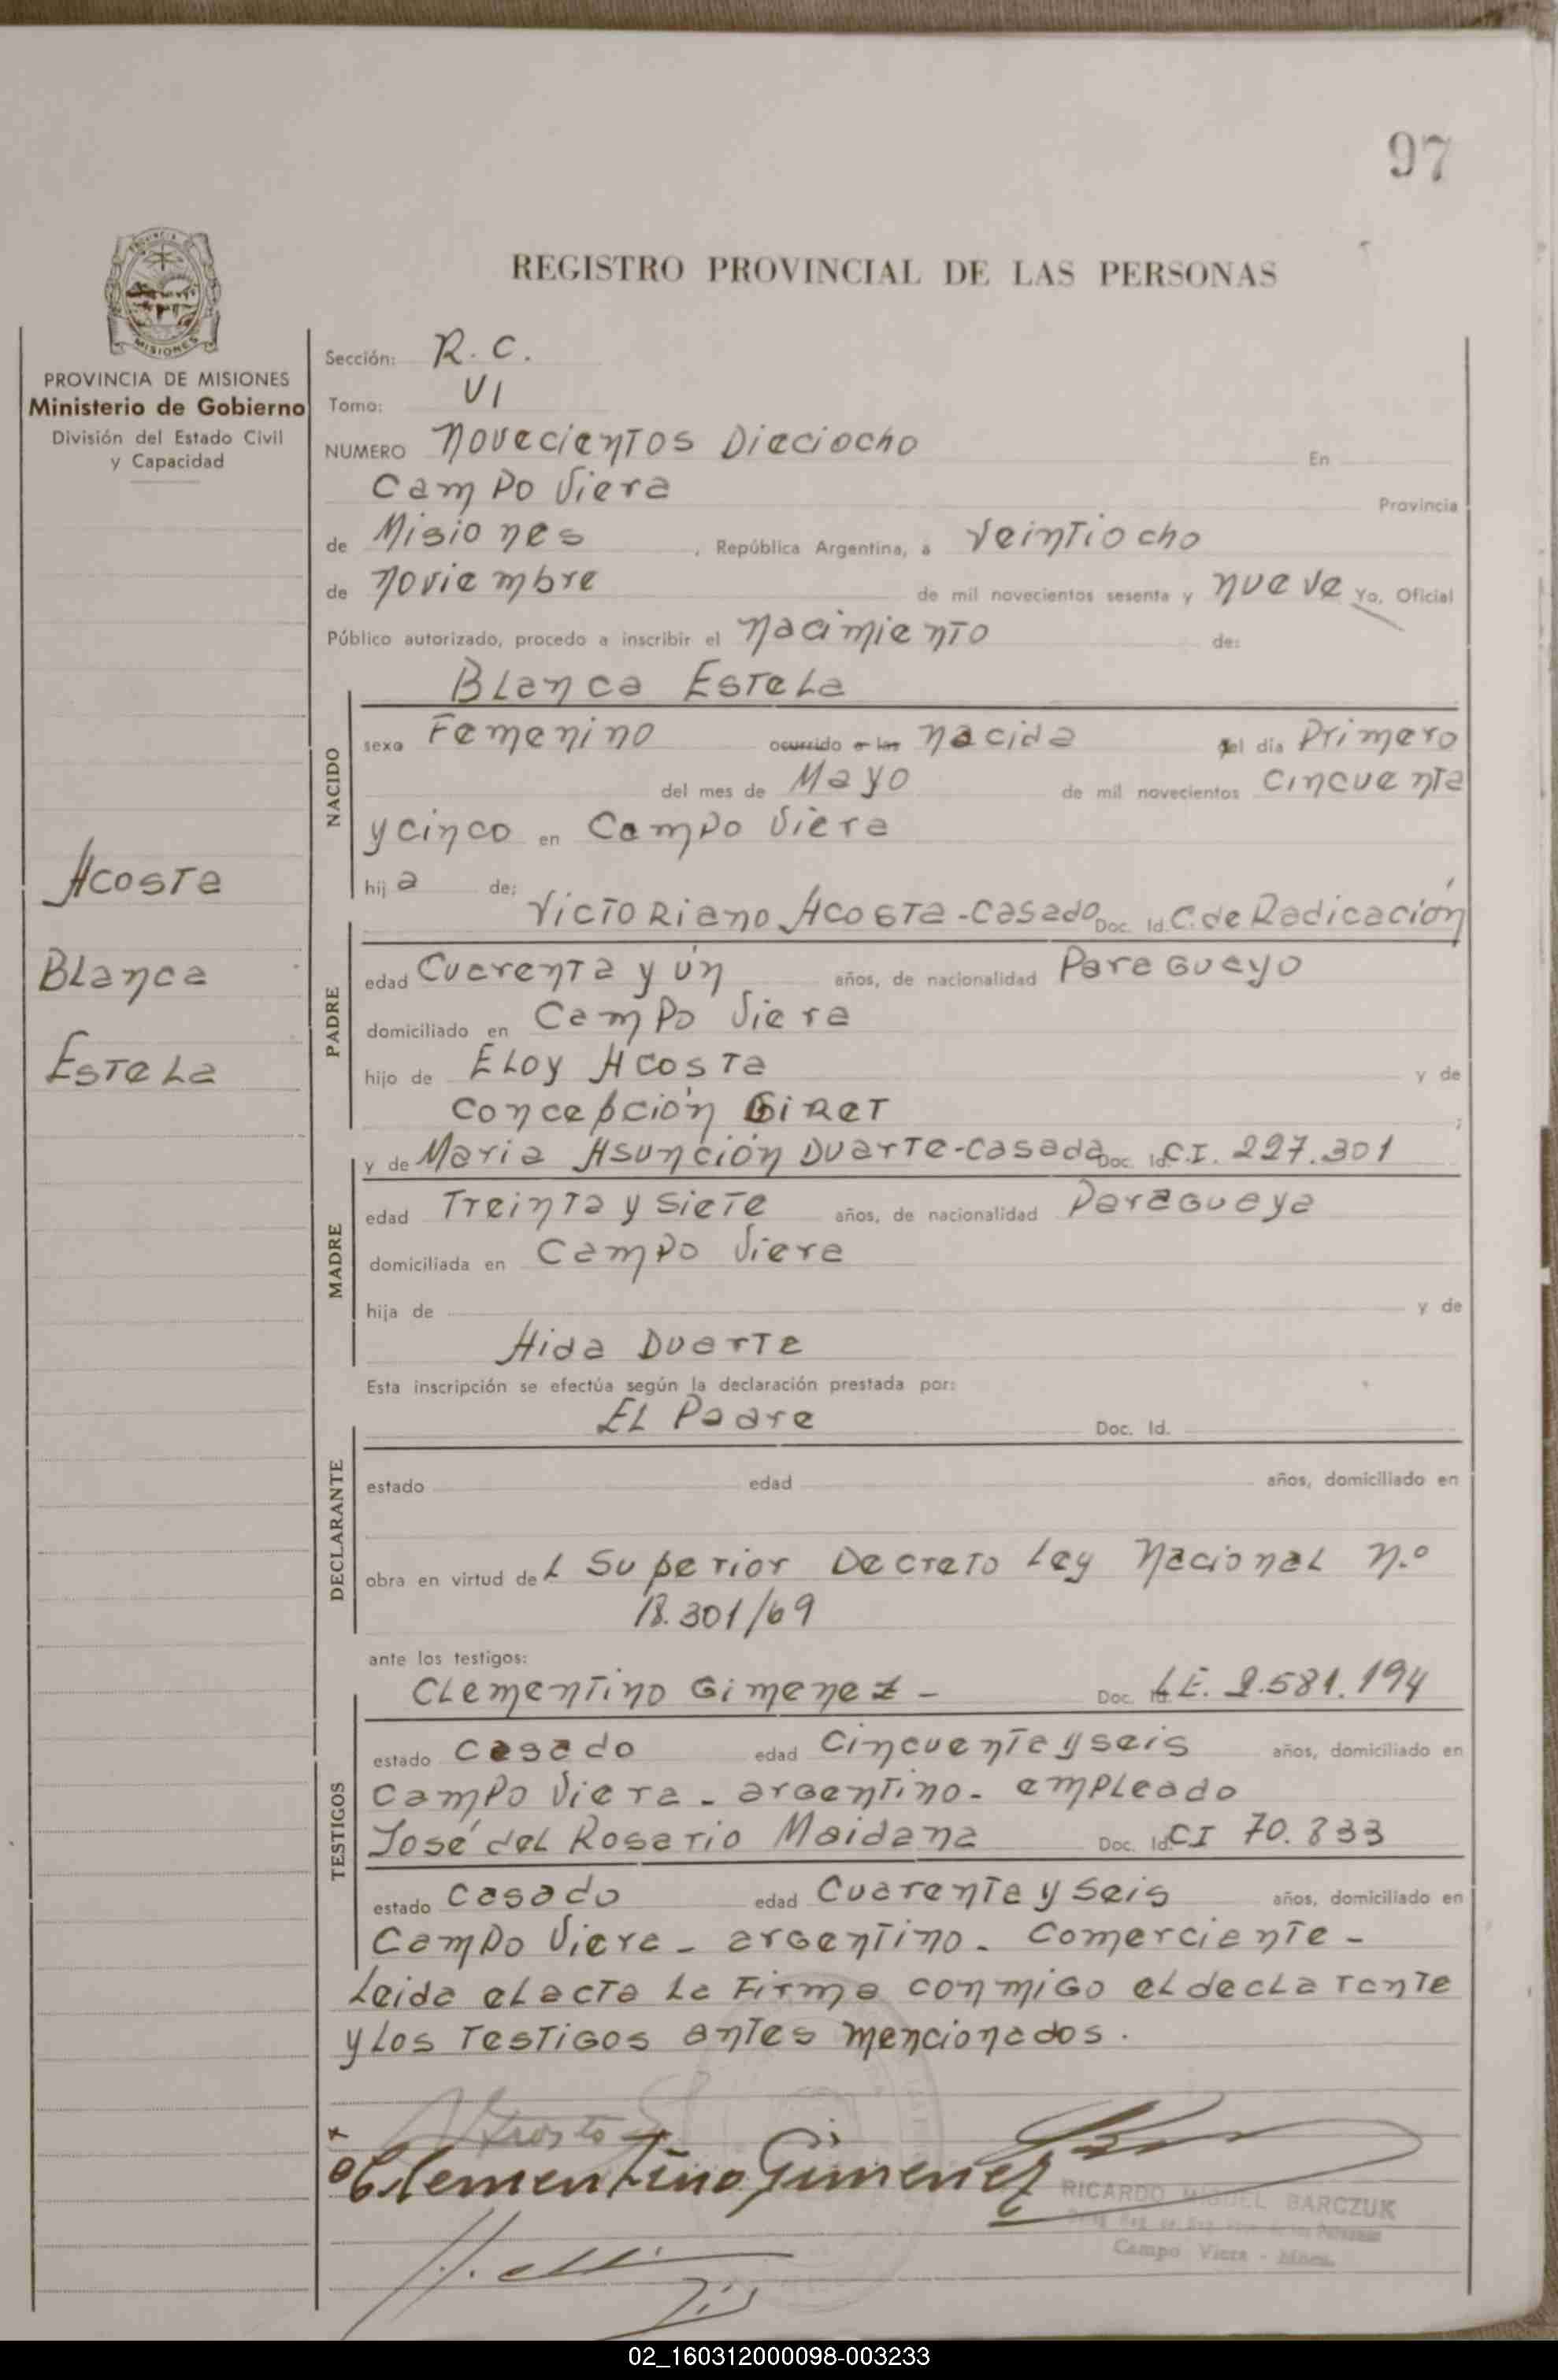 97
PROVINCIA DE MISIONES
REGISTRO PROVINCIAL DE LAS PERSONAS
PROVINCIA DE MISIONES
Ministerio de Gobierno
División del Estado Civil
y Capacidad
Acosta
Blanca
Estela
Sección: R. C.
Tomo: VI
NUMERO Novecientos Dieciocho En
Campo Viera Provincia
de Misiones , República Argentina, a Veintiocho
de Noviembre de mil novecientos sesenta y nueve Yo, Oficial
Público autorizado, procedo a inscribir el Nacimiento de:
Blanca Estela
NACIDO
sexo Femenino ocurrido a las nacida del día Primero
del mes de Mayo de mil novecientos cincuenta
y cinco en Campo Viera
hij a de:
Victoriano Acosta - Casado Doc. Id. C. de Radicación
PADRE
edad Cuarenta y un años, de nacionalidad Paraguayo
domiciliado en Campo Viera
hijo de Eloy Acosta y de
Concepción Giret ;
y de Maria Asunción Duarte - Casada Doc. Id. C.I. 227.301
MADRE
edad Treinta y siete años, de nacionalidad Paraguaya
domiciliada en Campo Viera
hija de y de
Aida Duarte
Esta inscripción se efectúa según la declaración prestada por:
El Padre Doc. Id.
DECLARANTE
estado edad años, domiciliado en
obra en virtud del Superior Decreto Ley Nacional N.º
18.301/69
ante los testigos:
Clementino Gimenez - Doc. Id. L.E. 2.581.194
TESTIGOS
estado Casado edad Cincuenta y seis años, domiciliado en
Campo Viera - argentino - empleado
José del Rosario Maidana Doc. Id. CI 70.833
estado Casado edad Cuarenta y seis años, domiciliado en
Campo Viera - argentino - Comerciante -
Leida el acta la Firma conmigo el declarante
y los testigos antes mencionados.
Clementino Gimenez
RICARDO MIGUEL BARCZUK
Campo Viera - Mnes.
02_160312000098-003233